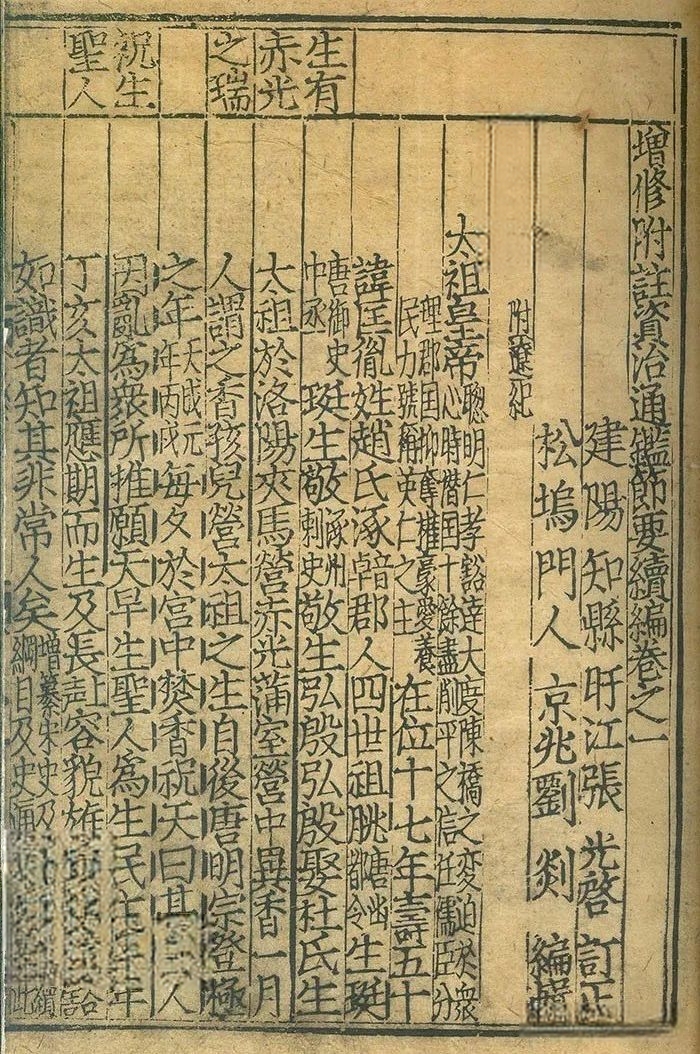 生有
赤光
之瑞
祝生
聖人
增修附註資治通鑑節要續編卷之一
建陽知縣旴江張光啓訂正
松塢門人京兆劉剡編輯
附遼紀
太祖皇帝聰明仁孝豁達大度陳橋之変迫於衆
心時僭国十餘盡削平之信任儒臣分
理郡国抑奪權豪愛養
民力號稱英仁之主在位十七年壽五十
諱匡胤姓趙氏涿音卓郡人四世祖脁唐幽都令生珽
唐御史中丞珽生敬涿州刺史敬生弘殷弘殷娶杜氏生
太祖於洛陽夾馬營赤光蒲室營中異香一月
人謂之香孩兒營太祖之生自後唐明宗登極
之年天成元年丙戌每夕於宮中焚香祝天曰某人
因亂爲衆所推願天早生聖人爲生民主
丁亥太祖應期而生及長上声容貌雄
如識者知其非常人矣增纂宋史及
綱目及史